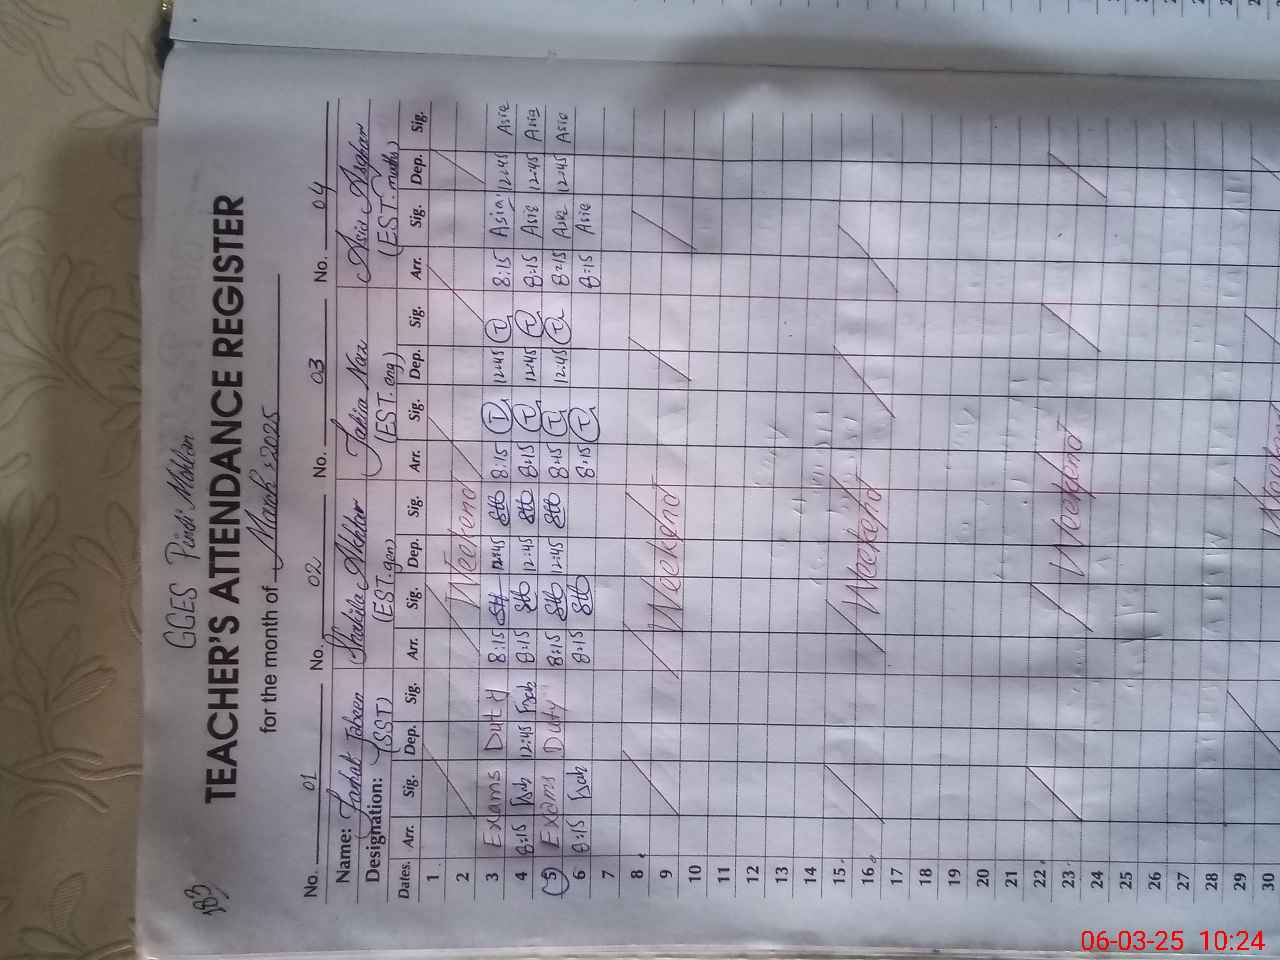 183
GGES Pindi Mohlan
TEACHER'S ATTENDANCE REGISTER
for the month of March, 2025
No. 01 No. 02 No. 03 No. 04
Name: Farhat Jabeen Shakila Akhtar Jabia Noor Asia Asghar
Designation: (SST) (EST. gen) (EST. eng) (EST. math)
Dates. Arr. Sig. Dep. Sig. Arr. Sig. Dep. Sig. Arr. Sig. Dep. Sig. Arr. Sig. Dep. Sig.
1
2 Weekend
3 Exams Duty 8:15 12:45 8:15 12:45 8:15 Asia 12:45 Asia
4 8:15 12:45 8:15 12:45 8:15 12:45 8:15 Asia 12:45 Asia
(5) Exams Duty 8:15 12:45 8:15 12:45 8:15 Asia 12:45 Asia
6 8:15 8:15 8:15 8:15 Asia
7
8
9 Weekend
10
11
12
13
14
15
16 Weekend
17
18
19
20
21
22
23 Weekend
24
25
26
27
28
29
30 Weekend
06-03-25 10:24